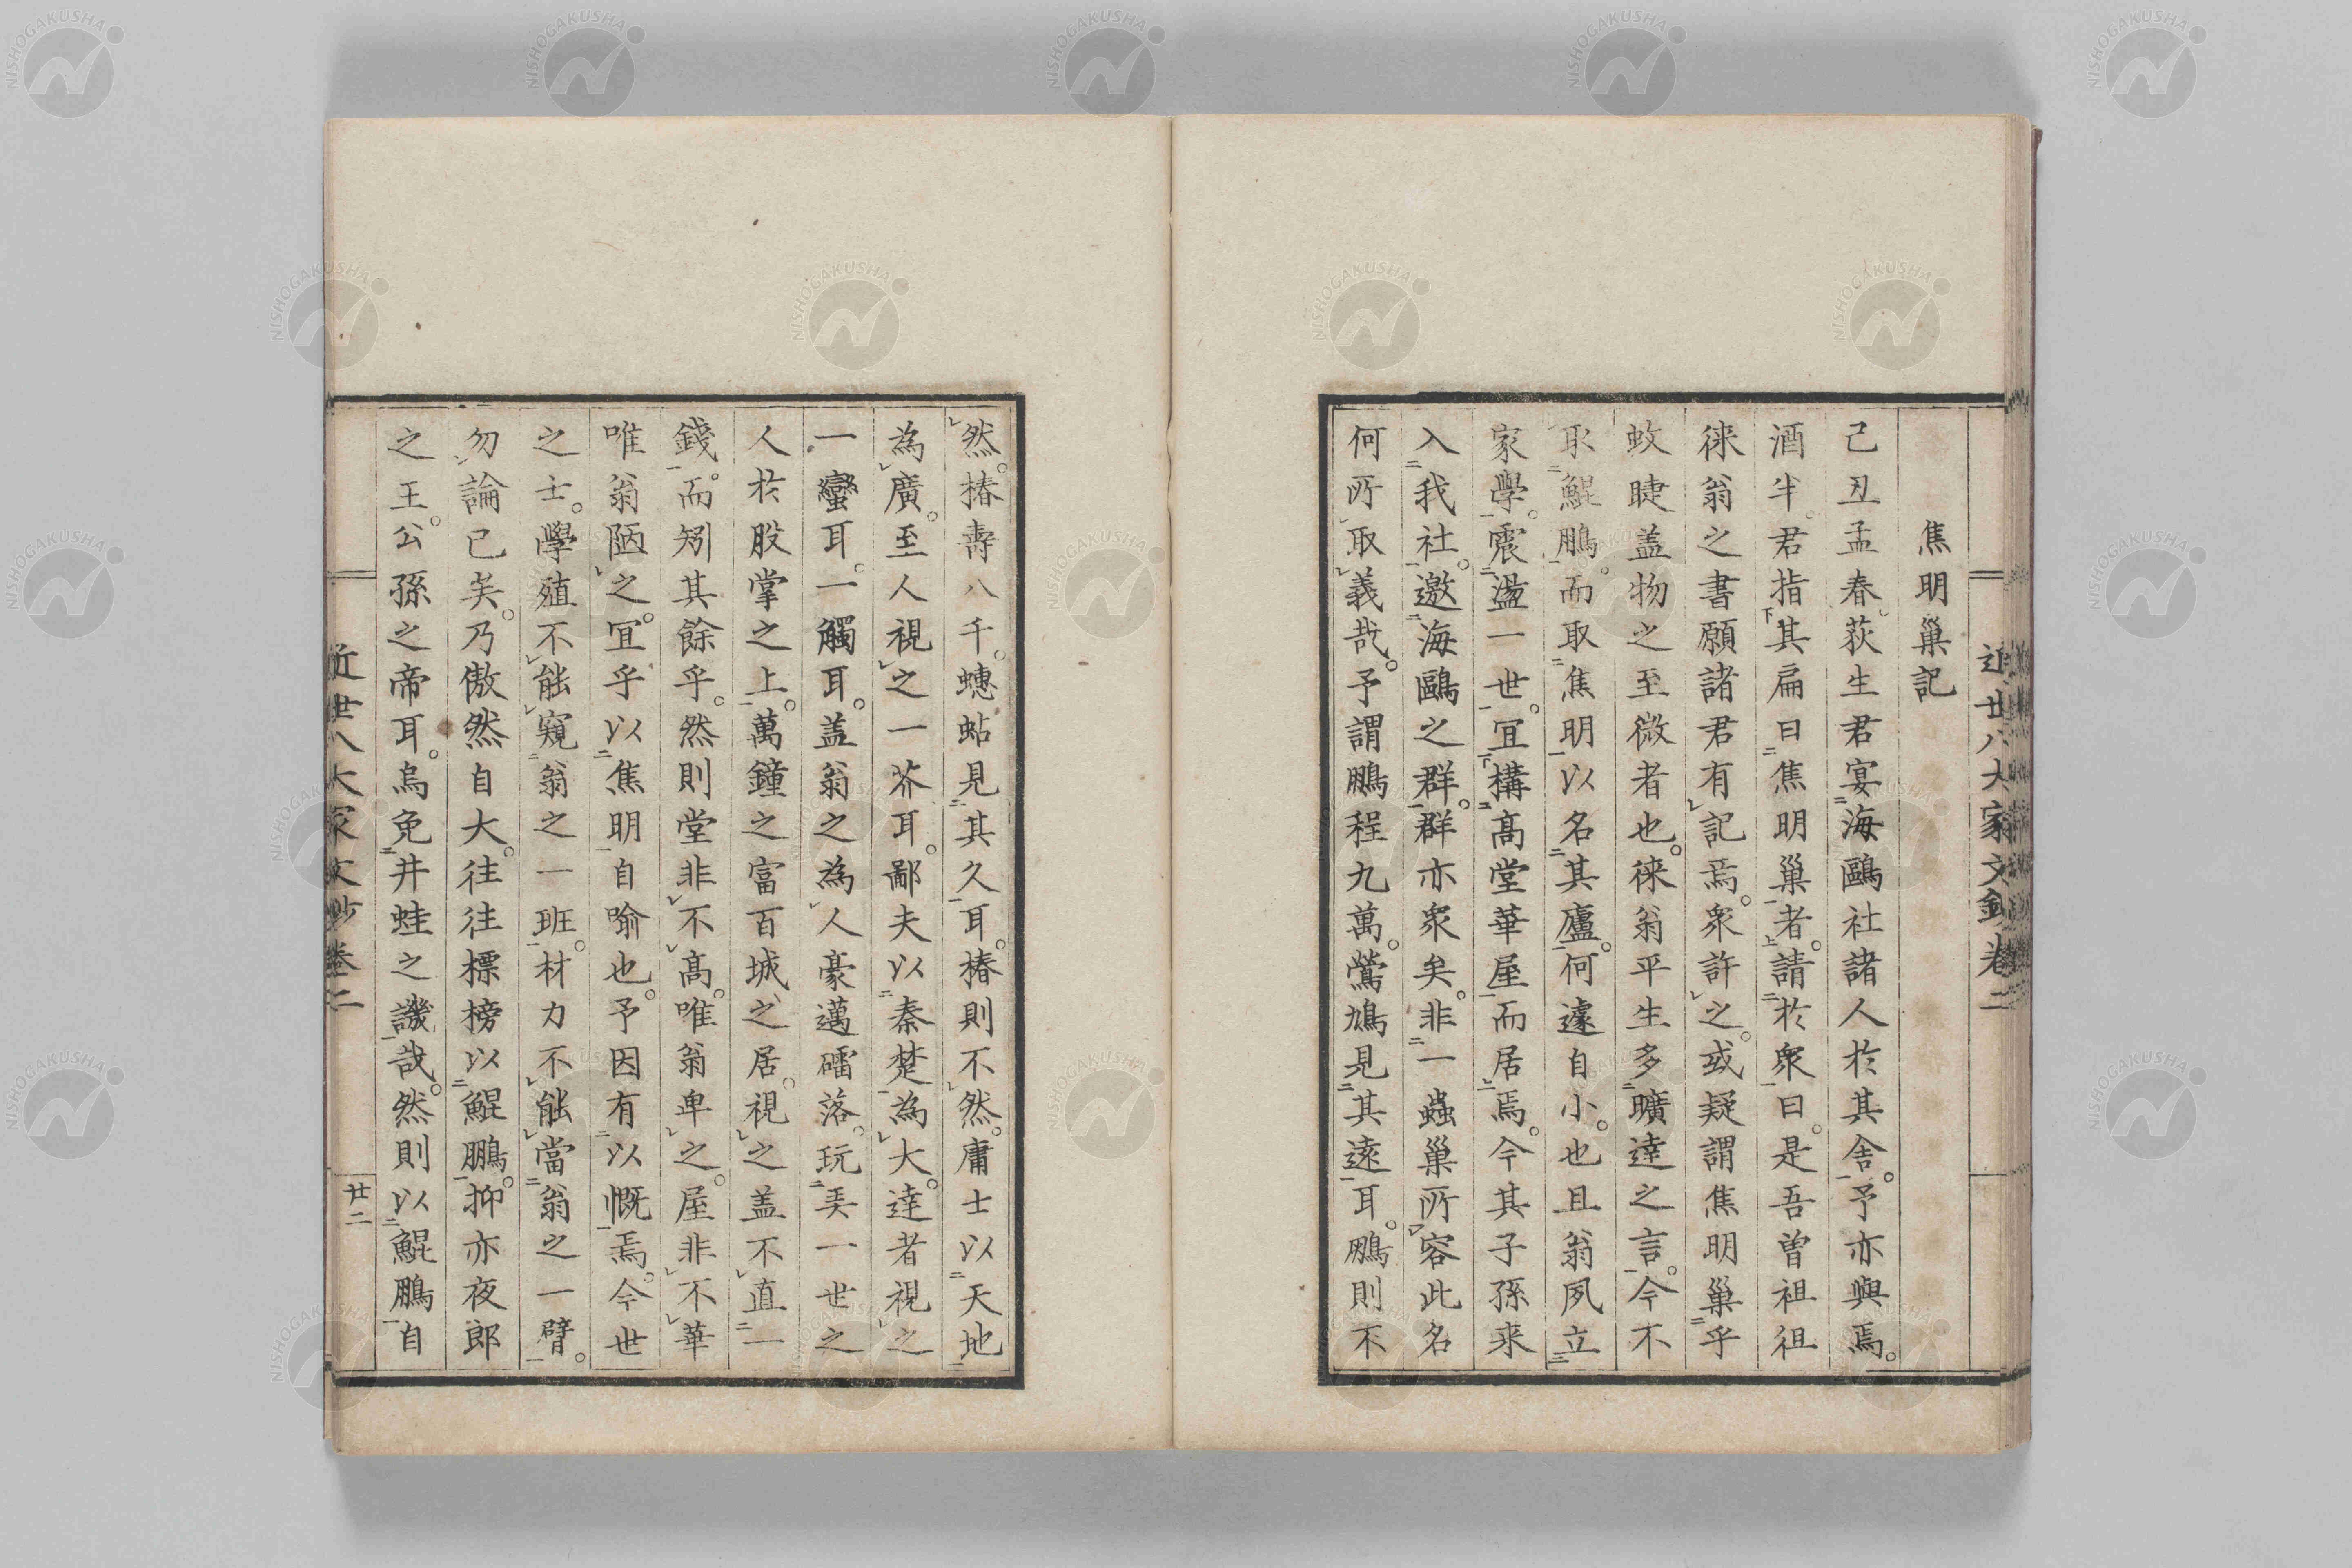 近世八大家文鈔卷二
焦明巢記
己丑孟春荻生君宴海鷗社諸人於其舍。予亦與焉。
酒半。君指其扁曰焦明巢者。請於衆曰。是吾曽祖祖
徠翁之書願諸君有記焉。衆許之。或疑謂焦明巢乎
蚊睫盖物之至微者也。徠翁平生多曠達之言。今不
取鯤鵬。而取焦明以名其廬。何遽自小。也且翁夙立
家學。震盪一世。宜構髙堂華屋而居焉。今其子孫来
入我社。邀海鷗之群。群亦衆矣。非一蟲巢所容此名
何所取義哉。予謂鵬程九萬。鶯鳩見其遠耳。鵬則不
然。椿壽八千。蟪蛄見其久耳。椿則不然。庸士以天地
為廣。至人視之一芥耳。鄙夫以秦楚為大。達者視之
一蠻耳。一觸耳。盖翁之為人豪邁磊落。玩弄一世之
人於股掌之上。萬鐘之富百城之居。視之盖不直一
錢。而矧其餘乎。然則堂非不髙。唯翁卑之。屋非不華
唯翁陋之。宜乎以焦明自喻也。予因有以慨焉。今世
之士。學殖不能窺翁之一班。材力不能當翁之一臂。
勿論已矣。乃傲然自大。往往標榜以鯤鵬。抑亦夜郎
之王。公孫之帝耳。烏免井蛙之譏哉。然則以鯤鵬自
近世八大家文鈔卷二
廿二
NISHOGAKUSHA